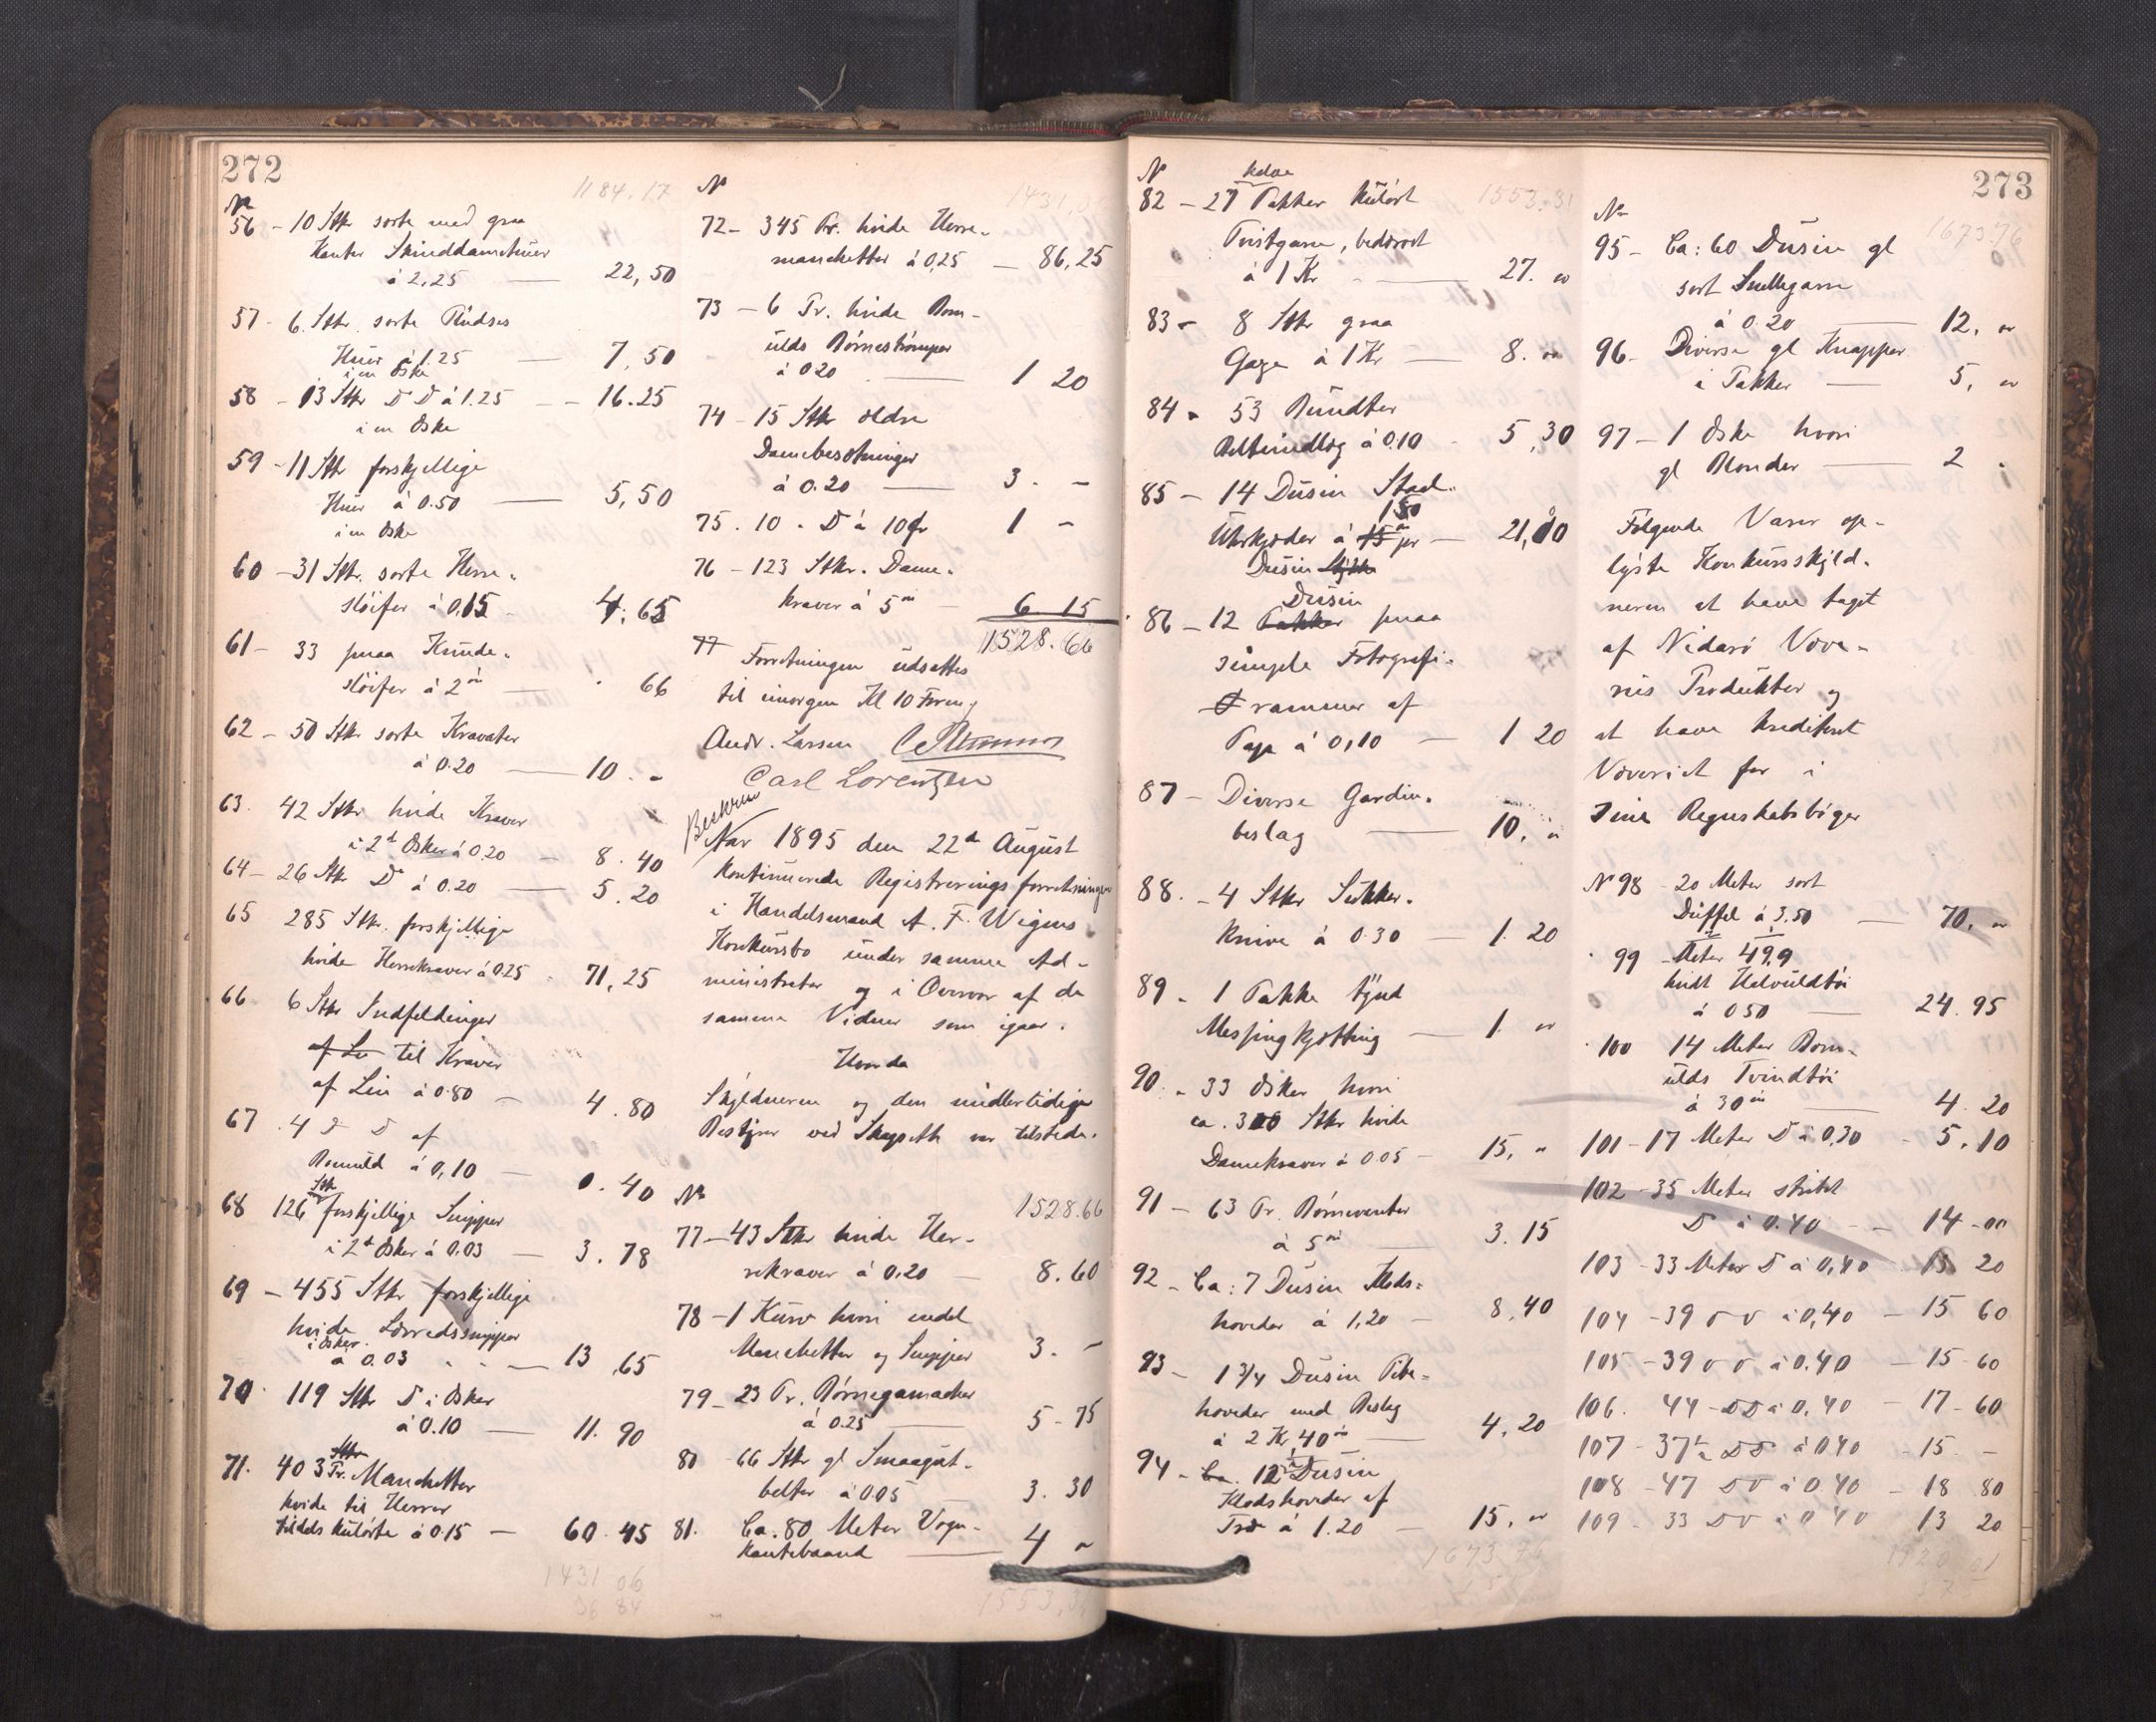 272
1184.17
No
56 - 10 Stkr sorte med graa
Kanter Skinddamehuer
à 2,25 — 22,50
57 - 6 Stkr. sorte Pludses
Huer à 1.25 — 7,50
i en Øske
58 - 13 Stkr D D à 1.25 — 16.25
i en Øske
59 - 11 Stkr forskjellige
Huer à 0.50 — 5,50
i en Øske
60 - 31 Stkr. sorte Herre-
sløifer à 0,15 4,65
61 - 33 smaa Kunde-
sløifer à 2 ør — . 66
62 - 50 Stkr sorte Kravater
à 0.20 — 10. -
63. 42 Stkr hvide Kraver
i 2d Øsker à 0.20 — 8.40
64 - 26 Stkr Do à 0.20 — 5.20
65 285 Stkr. forskjellige
hvide Herrekraver à 0.25 - 71,25
66 6 Stkr Indfeldinger
af Lin til Kraver
af Lin à 0.80 — 4.80
67 4 D D af
Bomuld à 0,10 — 0.40
68 126 Stk forskjellige Snipper
i 2d Øsker à 0.03 — 3.78
69 - 455 Stkr forskjellige
hvide Lærredssnipper
i Øsker
à 0.03 — 13,65
70. 119 Stkr D i Øsker
à 0.10 — 11.90
71. 403 Stkr Pr. Manchetter
hvide til Herrer
tildels kulørte à 0.15 — 60.45
1431 06
No
1431,06
72 - 345 Pr. hvide Herre-
manchetter à 0,25 — 86,25
73 - 6 Pr. hvide Bom-
ulds Børnestrømper
à 0.20 — 1 20
74 - 15 Stkr ældre
Damebesætninger
à 0.20 — 3. -
75. 10 - D à 10 ør 1 -
76 - 123 Stkr. Dame-
kraver à 5 ør — 6 15
1528.66
77
Forretningen udsattes
til imorgen Kl 10 Form.
Andr. Larsen
Carl Lorentzen
Aar 1895 den 22de August
kontinuerede Registreringsforretningen
i Handelsmand A. F. Wigens
Konkursbo under samme Ad-
ministrator og i Overvær af de
samme Vidner som igaar.
Hvorda
Skyldneren og den midlertidige
Bestyrer ved Skapseth var tilstede.
No 1528.66
77 - 43 Stkr hvide Her-
rekraver à 0,20 — 8.60
78 - 1 Kurv hvori endel
Manchetter og Snipper 3. -
79 - 23 Pr. Børnegamacher
à 0.25 — 5 - 75
80 66 Stkr gl Smaagut-
belter à 0.05 3.30
81. Ca. 80 Meter Vogn-
kantebaand — 4 -
273
No
1553.31
82 - 27 halve Pakker kulørt
Tvistgarn, bedærvet
à 1 Kr — 27. -
83 - 8 Stkr graa
Gaze à 1 Kr — 8. -
84 - 53 Bundter
Belteindlæg à 0.10 - 5,30
85 - 14 Dusin Staal-
Uhrkjæder à 15 1 50 pr — 21,00
Dusin Stykke
86 - 12 Pakker Dusin smaa
simple Fotografi-
rammer af
Pap à 0,10 — 1 20
87 - Diverse Gardin-
beslag — 10. -
88. - 4 Stkr Sukker-
knive à 0.30 — 1.20
89 - 1 Pakke tynd
Messingkjætting — 1. -
90. - 33 Øsker hvori
ca. 300 Stkr hvide
Damekraver à 0.05 — 15. -
91 - 63 Pr. Børnevanter
à 5 ør — 3.15
92 - Ca: 7 Dusin Klods-
hoveder à 1,20 — 8,40
93 - 1 3/4 Dusin Pibe-
hoveder med Beslag
à 2 Kr 40 ør — 4,20
94 - Ca. 12 1/2 Dusin
Klodshoveder af
Træ à 1.20 — 15. -
1673.76
No
1673.76
95 - Ca: 60 Dusin gl
sort Snellegarn
à 0.20 — 12. -
96 - Diverse gl Knapper
i Pakker — 5. -
97 - 1 Øske hvori
gl Blonder — 2 .
Følgende Varer op-
lyste Konkursskyld-
neren at have taget
af Nidarø Væve-
ris Produkter og
at have krediteret
Væveriet for i
sine Regnskabsbøger
No 98 - 20 Meter sort
Duffel à 3,50 — 70. -
99 - Meter 49,9
hvidt Halvuldtøi
à 0.50 — 24.95
100 14 Meter Bom-
ulds Tvindtøi
à 30 ør — 4.20
101 - 17 Meter D à 0,30 - 5.10
102 - 35 Meter stribt
D à 0.40 — 14 - 00
103 - 33 Meter D à 0,40 13 20
104 - 39 D D à 0,40 — 15 60
105 - 39 D D à 0.40 — 15 - 60
106. 44 - D D à 0,40 — 17 - 60
107 - 37 1/2 D D à 0.40 - 15. -
108 - 47 D D à 0.40 — 18 80
109 - 33 D D à 0.40 13 20